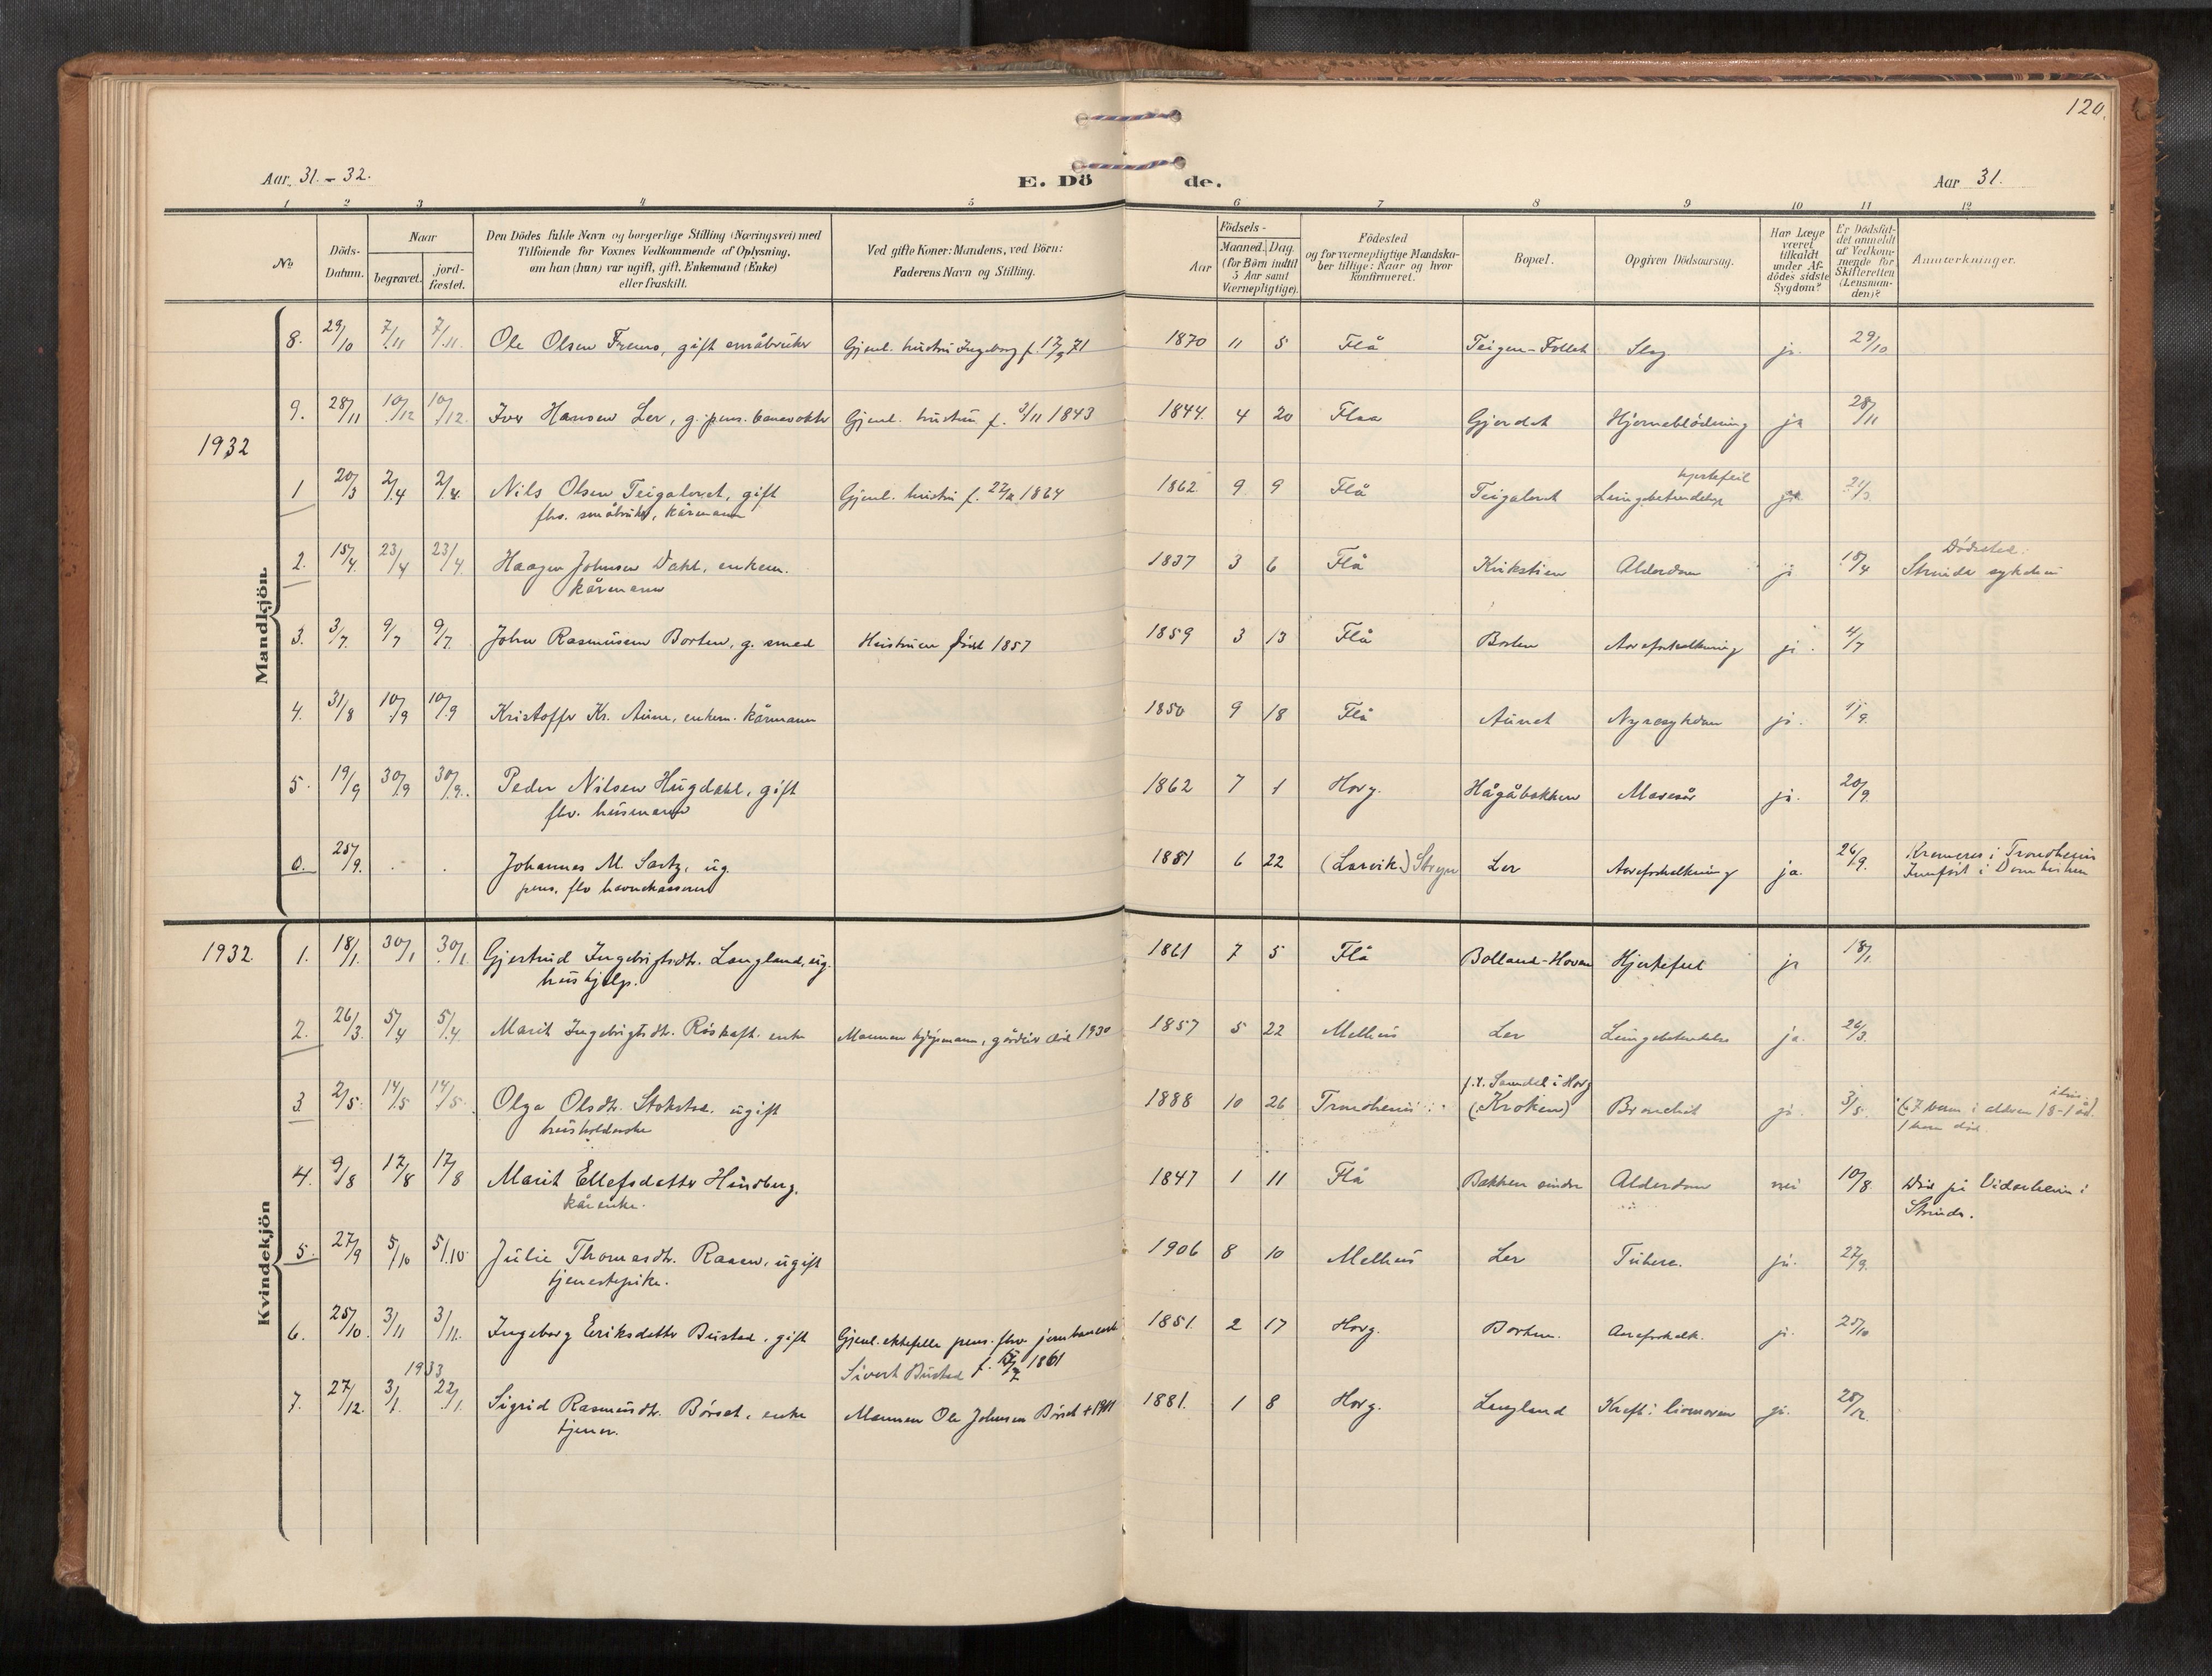 120.
Aar 31. - 32.
E. Dö de.
Aar 31.
1 2 3 4 5 6 7 8 9 10 11 12
No
Döds-Datum.
Naar
begravet.
jord-fæstet.
Den Dödes fulde Navn og borgerlige Stilling (Næringsvei) med
Tilföiende for Voxnes Vedkommende af Oplysning,
om han (hun) var ugift, gift, Enkemand (Enke)
eller fraskilt.
Ved gifte Koner: Mandens, ved Börn:
Faderens Navn og Stilling.
Födsels-
Aar
Maaned. Dag.
(for Börn indtil
5 Aar samt
Værnepligtige).
Födested
og for værnepligtige Mandska-
ber tillige: Naar og hvor
konfirmeret.
Bopæl.
Opgiven Dödsaarsag.
Har Læge
været
tilkaldt
under Af-
dödes sidste
Sygdom?
Er Dödsfal-
det anmeldt
af Vedkom-
mende for
Skifteretten
(Lensman-
den)?
Anmærkninger.
Mandkjön.
8. 29/10 7/11 7/11. Ole Olsen Fremo, gift småbruker Gjenl. hustru Ingeborg f. 17/9 71 1870 11 5 Flå Teigen-Follet Slag ja. 29/10
9. 28/11 10/12 10/12. Iver Hansen Ler, g. pens. banevokter Gjenl. hustru f. 2/11 1843 1844. 4 20 Flaa Gjerdet Hjerneblødning ja 28/11
1932
hjertefeil
1 20/3 2/4 2/4. Nils Olsen Teigaloret, gift Gjenl. hustru f. 1864 1862 9 9 Flå Teigaloret Lungebetendelse ja 21/3.
fhv. småbruker, kårmann
Dödssted:
2. 15/4. 23/4 23/4. Haagen Johnsen Dahl, enkem. 1837 3 6 Flå Kvikstien Alderdom ja 18/4 Strinda sykehus
kårmann
3. 3/7. 9/7 9/7. John Rasmussen Borten, g. smed Hustruen født 1857 1859 3 13 Flå Borten Aareforkalkning ja. 4/7
4. 31/8 10/9 10/9 Kristoffer Kr. Aune, enkem. kårmann 1850 9 18 Flå Aunet Nyresykdom ja. 1/9.
5. 19/9 30/9 30/9. Peder Nilsen Hugdahl, gift 1862 7 1 Horg. Hågåbakken Mavesår ja. 20/9.
fhv. husmann
6. 25/9. . . Johannes M. Sartz, ug. 1881 6 22 (Larvik) Stryn Ler Aareforkalkning ja. 26/9. Kremeres i Trondheim
pens. fhv havnekasserer Innført i Domkirken
Kvindekjön
1932. 1. 18/1. 30/1 30/1. Gjertrud Ingebrigtsdtr. Langland, ug. 1861 7 5 Flå Bolland-Hovan Hjertefeil ja 18/1.
hushjelp.
2. 26/3. 5/4 5/4. Marit Ingebrigtsdtr. Røskaft. enke Mannen kjøpmann, gårdeier död 1930 1857 5 22 Melhus Ler Lungebetendelse ja. 26/3.
f.t. Sandal i Horg
3. 2/5. 14/5 14/5. Olga Olsdtr. Stokstad. ugift 1888 10 26 Trondheim (Kroken) Bronchit ja. 3/5. 7 barn i alderen 18-1 år.
husholderske 1 barn död.
4. 9/8 17/8 17/8 Marit Ellefsdatter Hundberg, 1847 1 11 Flå Bakken øndre Alderdom nei 10/8. Död på Vidarheim i
kårenke. Strinda.
5. 27/9 5/10 5/10. Julie Thomasdtr. Raaen, ugift 1906 8 10 Melhus Ler Tuberc. ja. 27/9.
tjenestepike.
6. 25/10. 3/11 3/11. Ingeborg Eriksdatter Bustad, gift Gjenl. ektefelle pens. fhv. jernbanearb. 1851 2 17 Horg. Borten. Aareforkalk. ja. 25/10
Sivert Bustad f. 1861
1933
7. 27/12. 3/1. 22/1. Sigrid Rasmusdtr. Børset, enke Mannen Ole Johnsen Børset + 1911 1881. 1 8 Horg. Langland Kreft i livmoren ja. 28/12.
tjener.